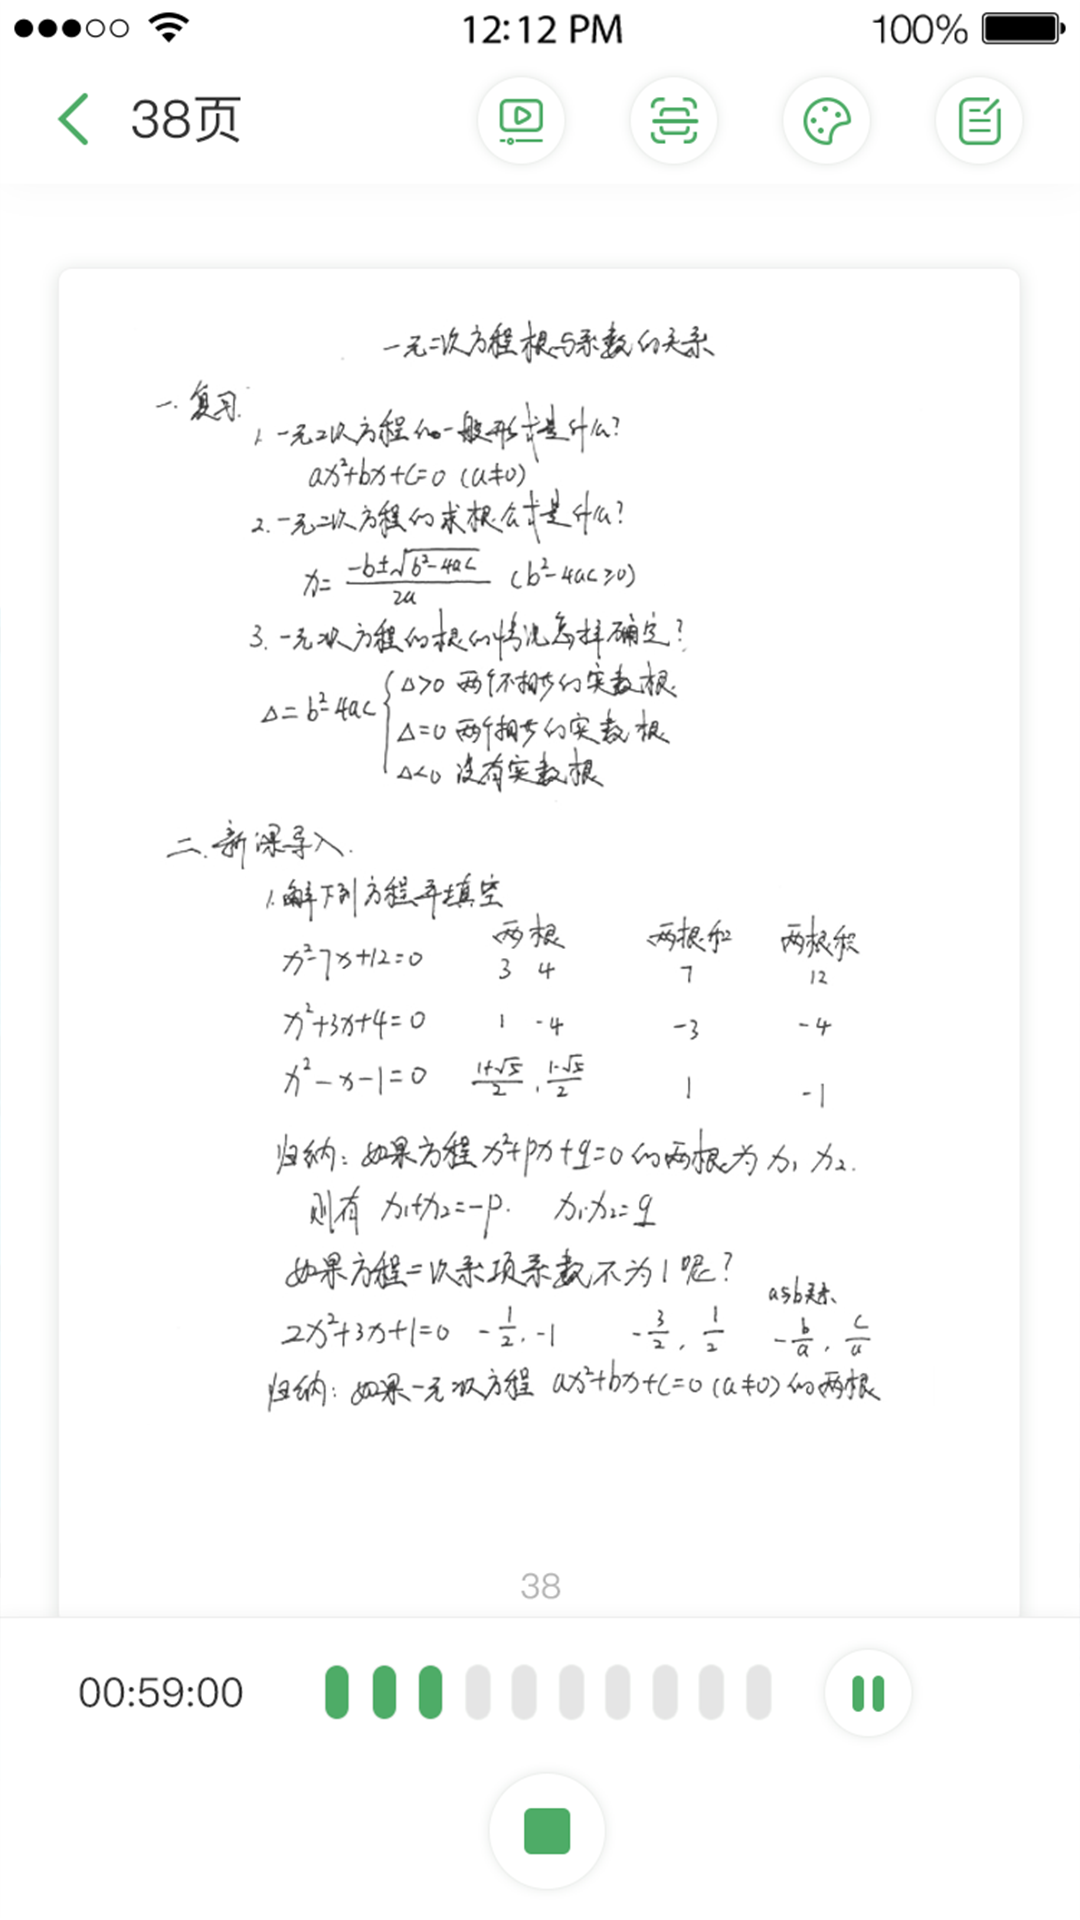 12:12 PM 100%
38页
一元二次方程根与系数的关系
一.复习.
1. 一元二次方程的一般形式是什么?
ax²+bx+c=0 (a≠0)
2. 一元二次方程的求根公式是什么?
x= -b±√b²-4ac / 2a (b²-4ac≥0)
3. 一元二次方程的根的情况怎样确定?
Δ=b²-4ac { Δ>0 两个不相等的实数根.
Δ=0 两个相等的实数根
Δ<0 没有实数根
二.新课导入.
1.解下列方程并填空
两根 两根和 两根积
x²-7x+12=0 3 4 7 12
x²+3x+4=0 1 -4 -3 -4
x²-x-1=0 1+√5/2 , 1-√5/2 1 -1
归纳: 如果方程x²+px+q=0的两根为x₁ x₂.
则有 x₁+x₂=-p. x₁·x₂=q
如果方程二次系项系数不为1呢?
a与b关系
2x²+3x+1=0 -1/2, -1 -3/2, 1/2 -b/a, c/a
归纳: 如果一元二次方程 ax²+bx+c=0 (a≠0)的两根
38
00:59:00